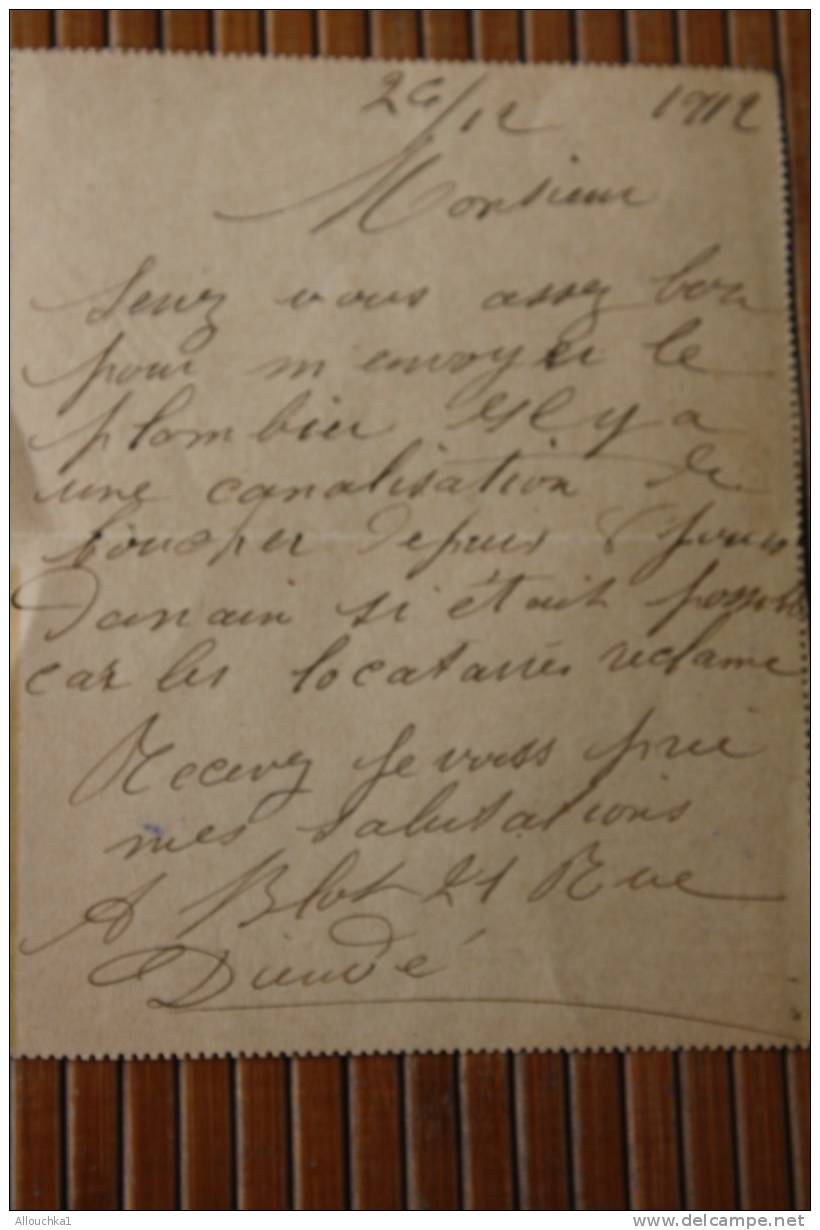 26/12 1912
Monsieur
Serez vous assez bon
pour m envoyer le
plombier Il y a
une canalisation de
boucher depuis 8 jours
Demain si était possible
car les locataires reclame
Recevez je vous prie
mes salutations
A Blot 21 Rue
Dieudé
Allouchka1
www.delcampe.net